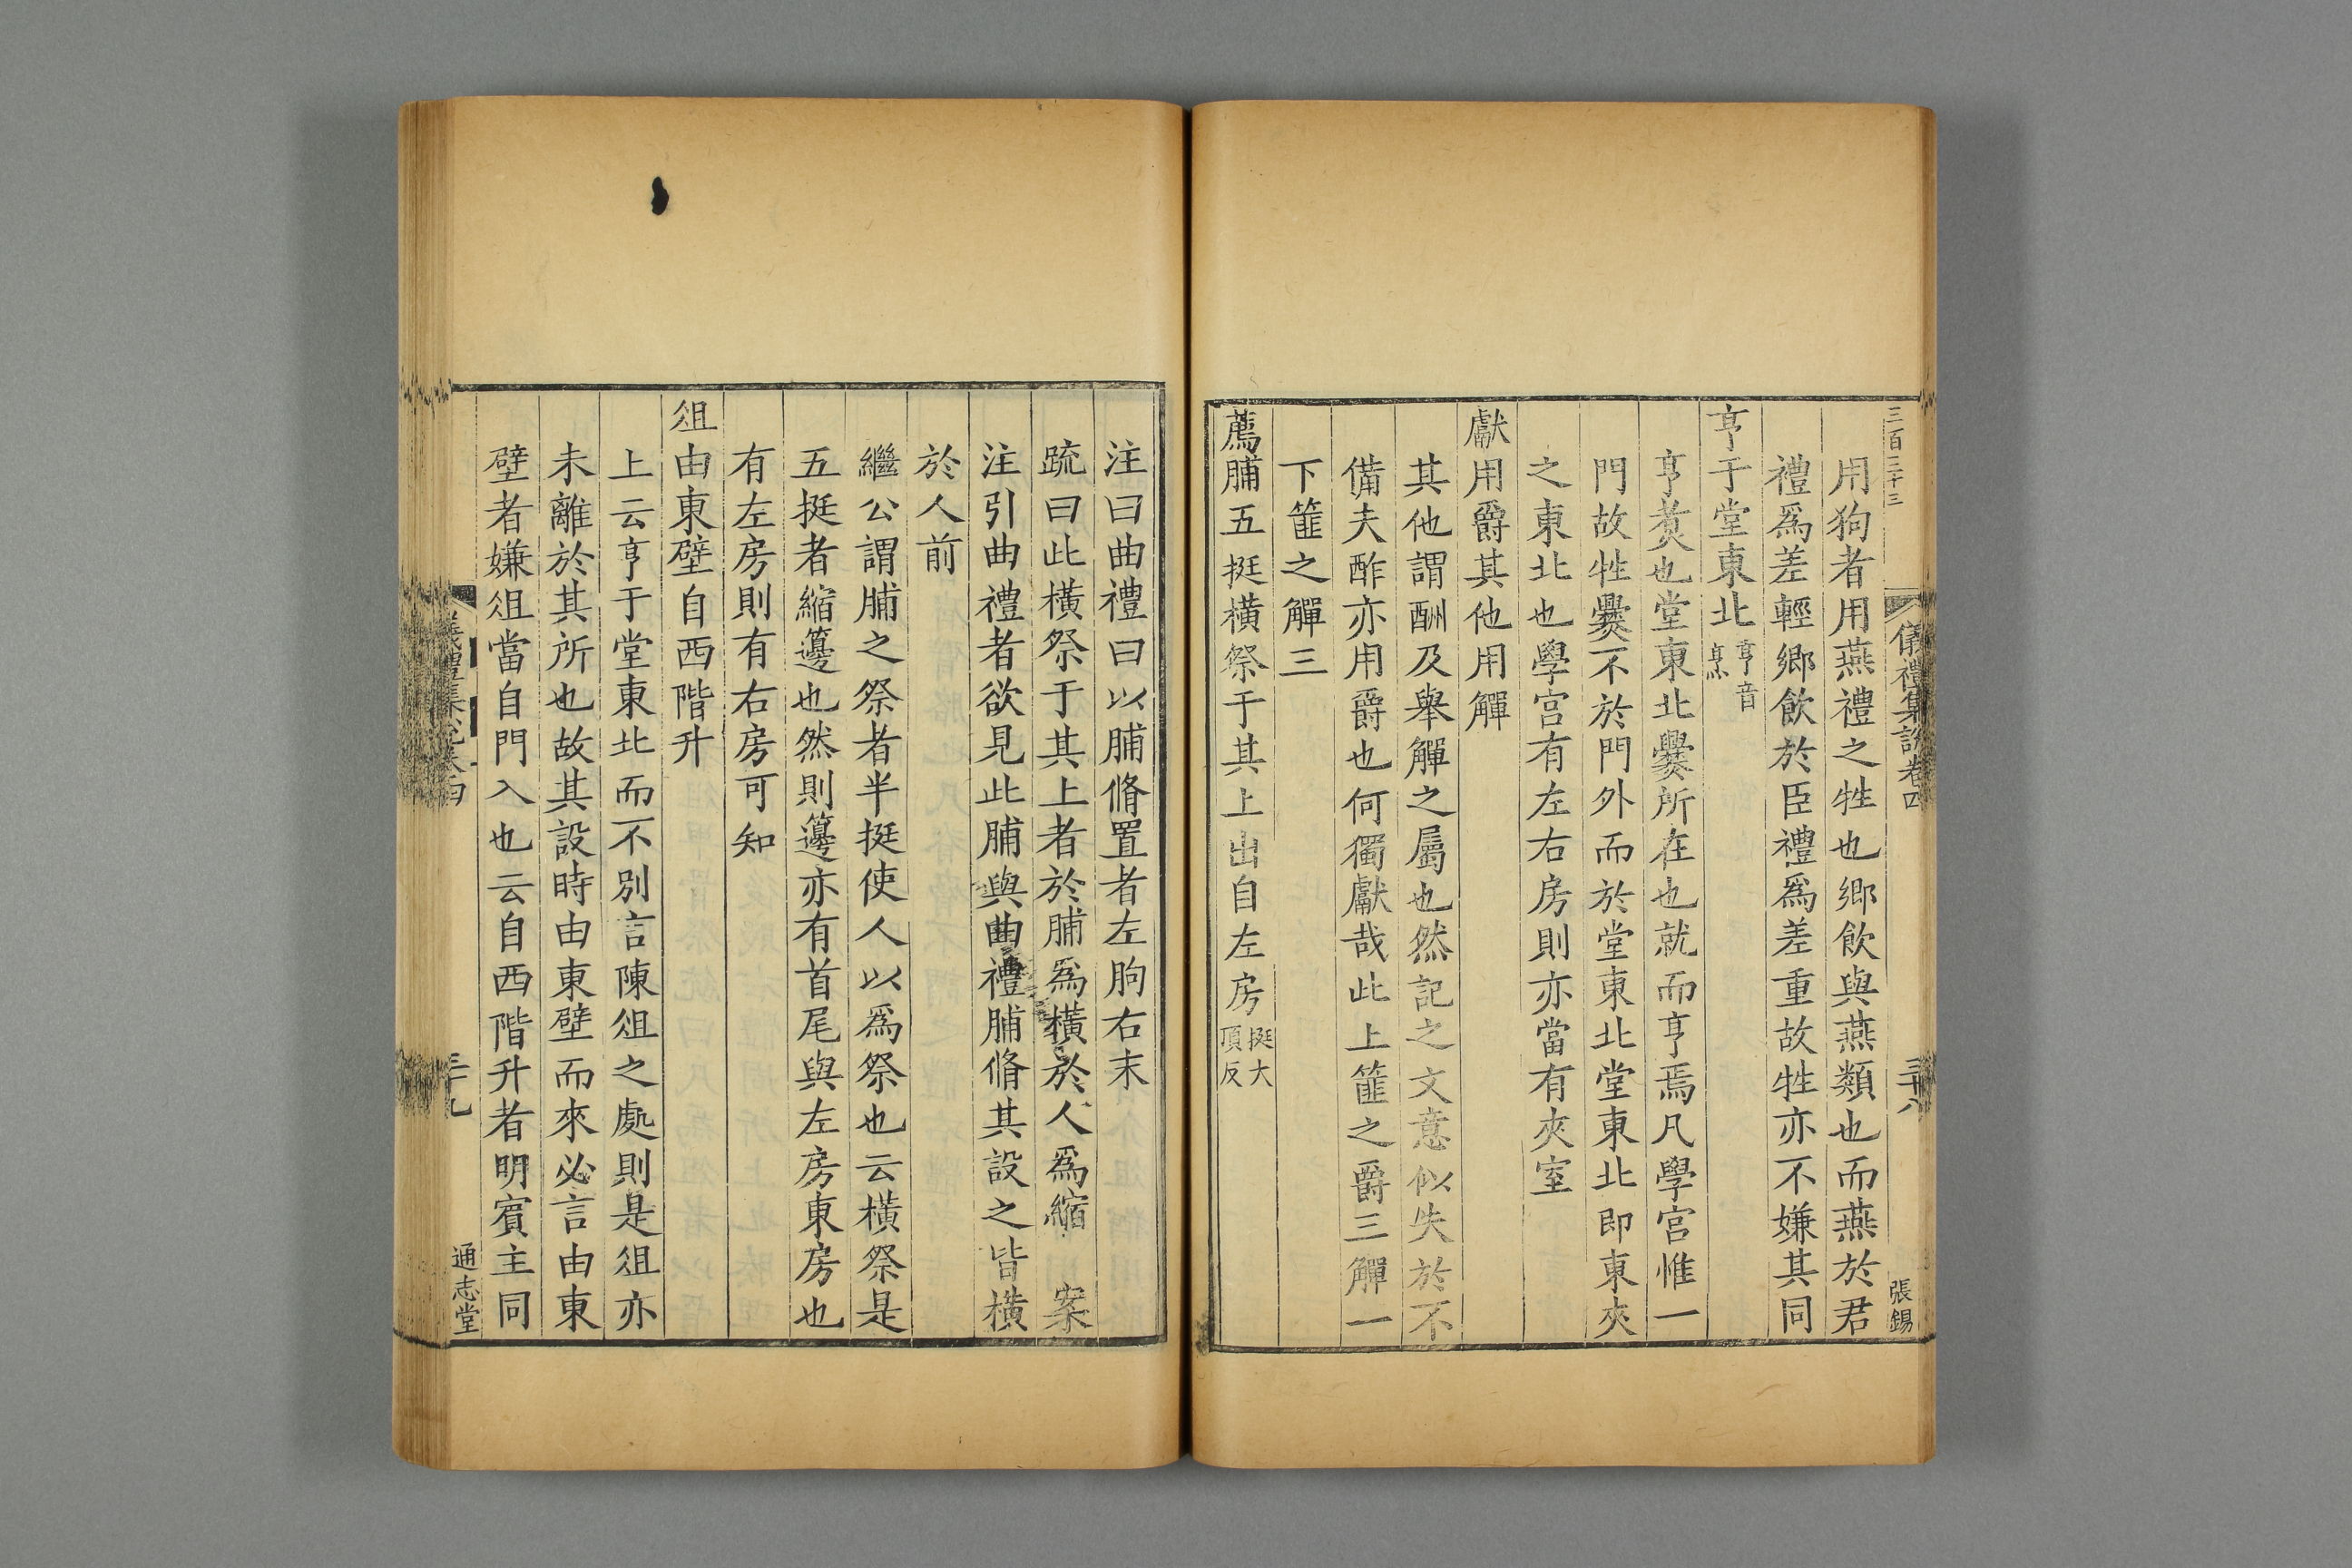 三百三十三
儀禮集說卷四
三十八
張錫
用狗者用燕禮之牲也鄉飲與燕類也而燕於君
禮爲差輕鄉飲於臣禮爲差重故牲亦不嫌其同
亨于堂東北亨音烹
亨煑也堂東北爨所在也就而亨焉凡學宫惟一
門故牲爨不於門外而於堂東北堂東北即東夾
之東北也學宫有左右房則亦當有夾室
獻用爵其他用觶
其他謂酬及舉觶之屬也然記之文意似失於不
備夫酢亦用爵也何獨獻哉此上篚之爵三觶一
下篚之觶三
薦脯五挺橫祭于其上出自左房挺大頂反
注曰曲禮曰以脯脩置者左朐右末
疏曰此橫祭于其上者於脯爲橫於人爲縮 案
注引曲禮者欲見此脯與曲禮脯脩其設之皆橫
於人前
繼公謂脯之祭者半挺使人以爲祭也云橫祭是
五挺者縮籩也然則籩亦有首尾與左房東房也
有左房則有右房可知
俎由東壁自西階升
上云亨于堂東北而不別言陳俎之處則是俎亦
未離於其所也故其設時由東壁而來必言由東
壁者嫌俎當自門入也云自西階升者明賓主同
儀禮集說卷四
三十九
通志堂